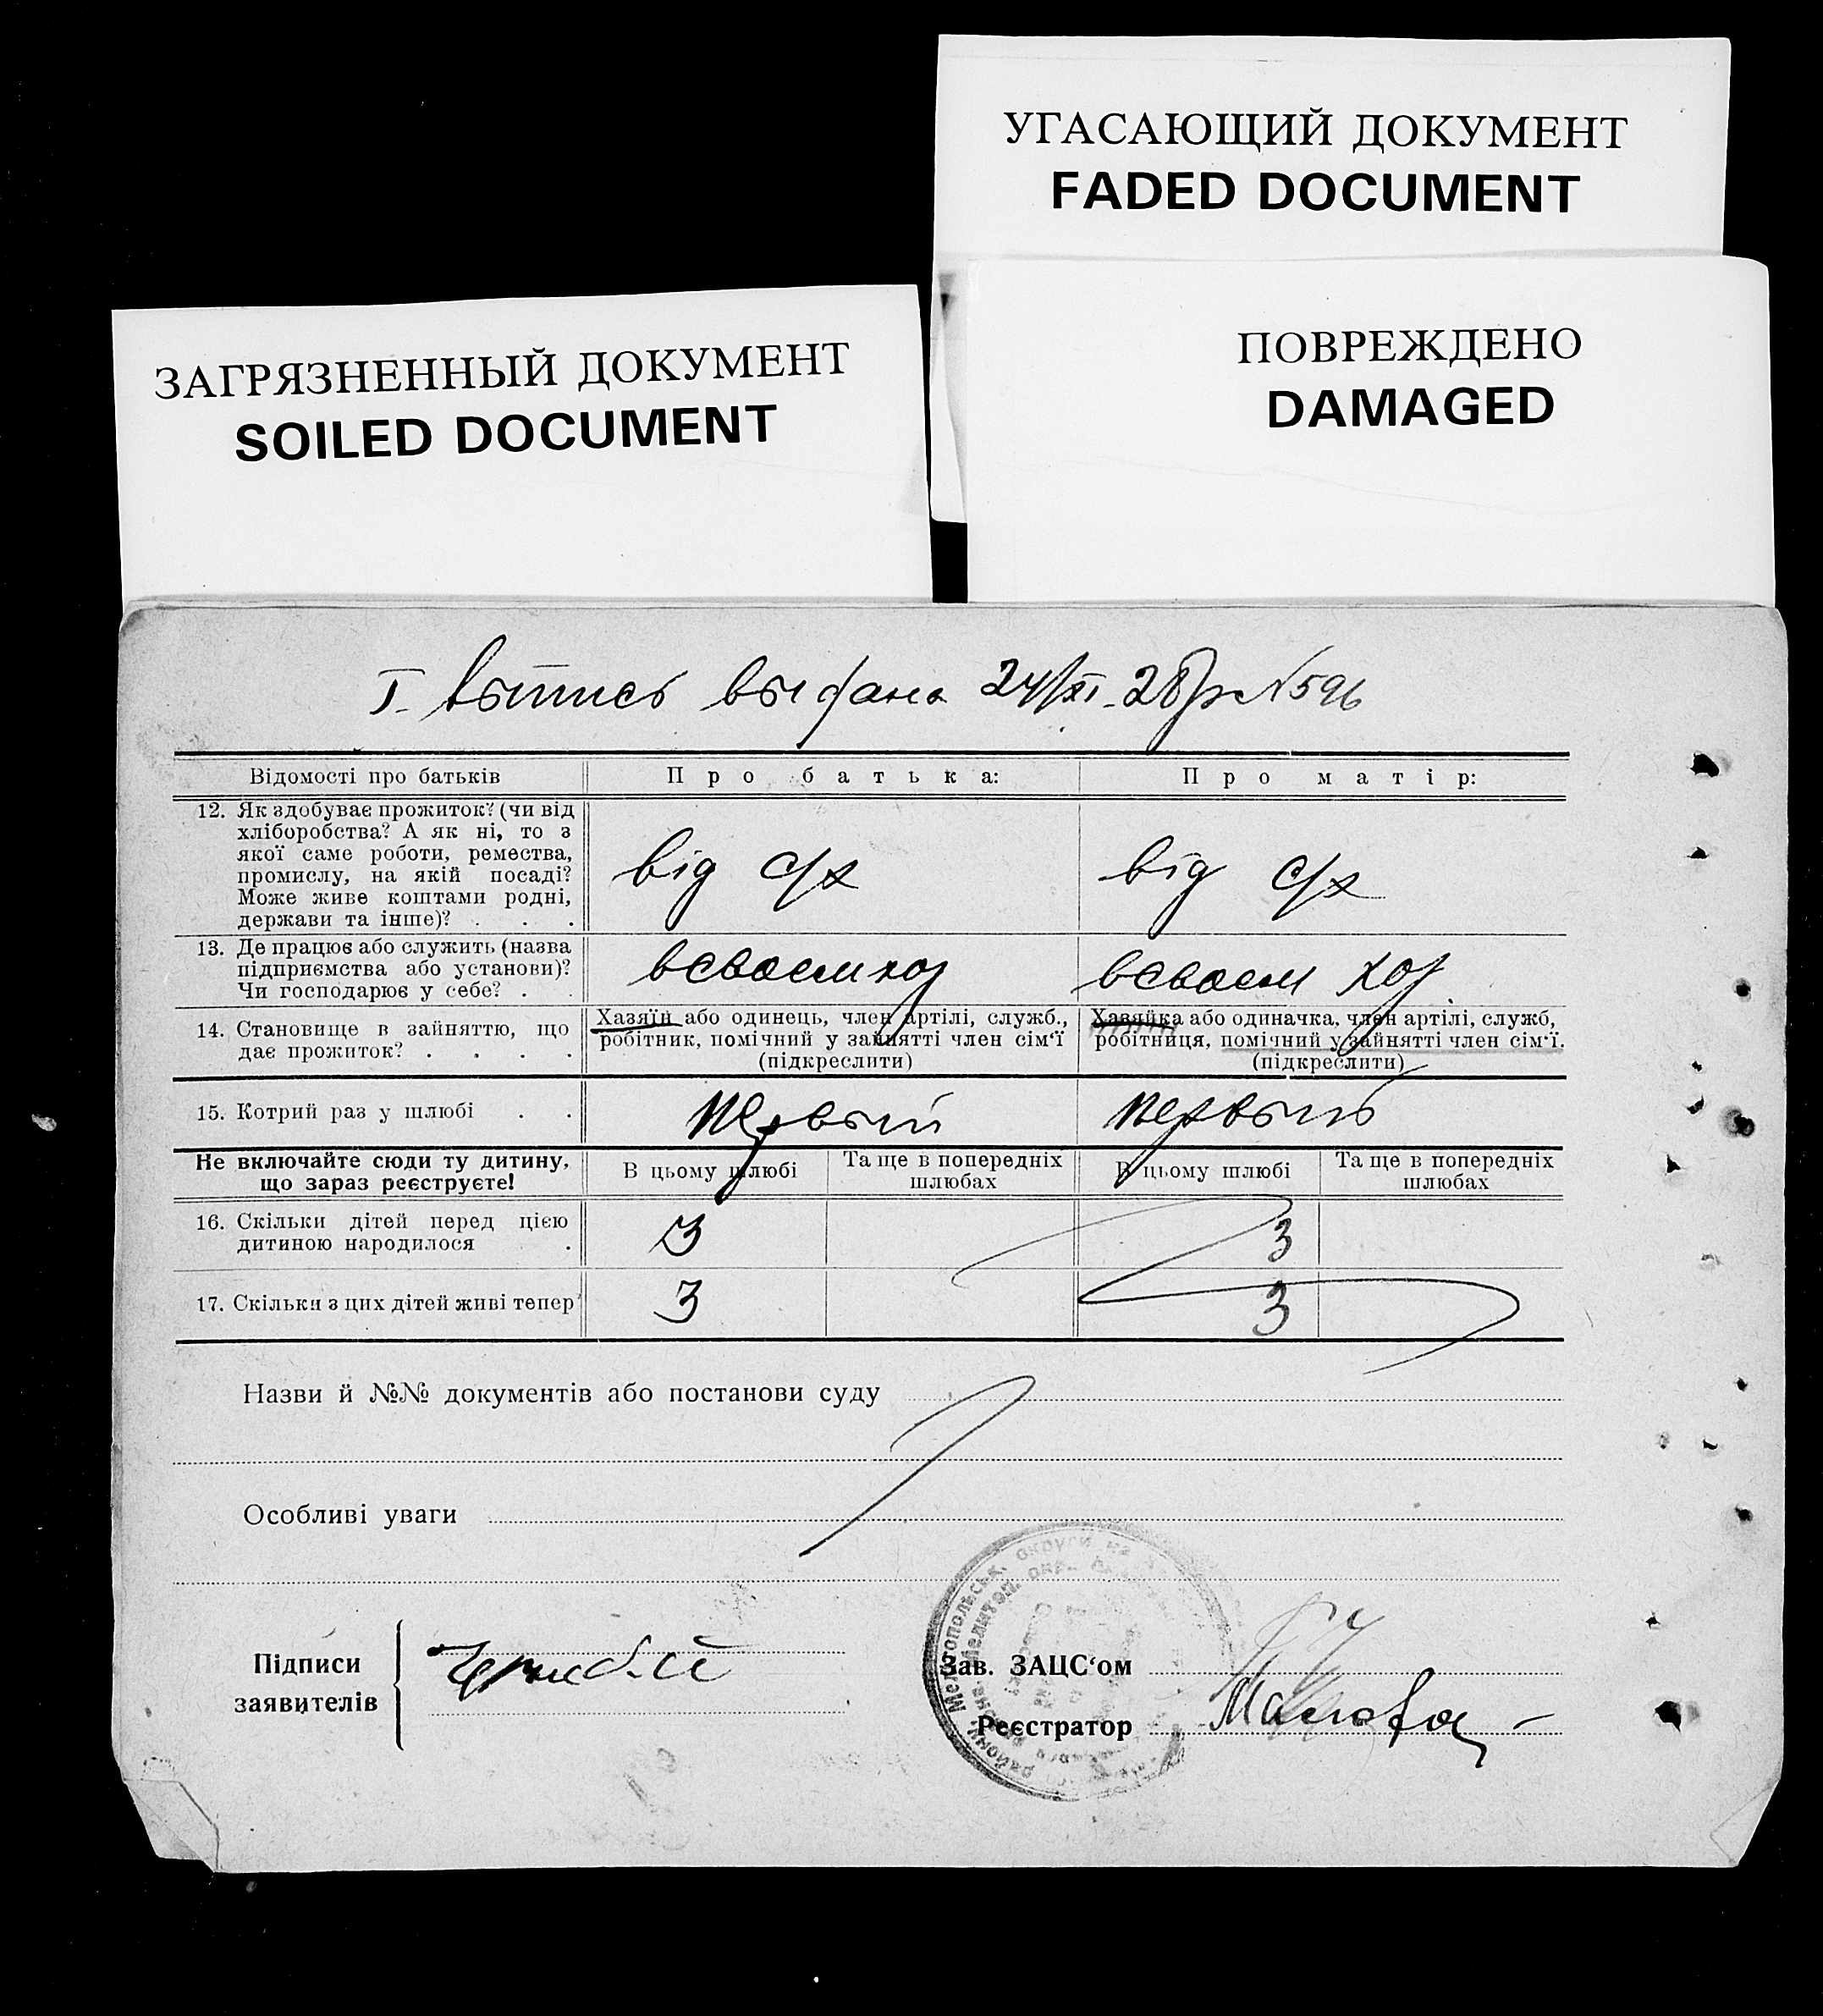 УГАСАЮЩИЙ ДОКУМЕНТ
FADED DOCUMENT
ЗАГРЯЗНЕННЫЙ ДОКУМЕНТ
SOILED DOCUMENT
ПОВРЕЖДЕНО
DAMAGED
I. выпись выдана 24/XI-28 р №596
Відомості про батьків
Про батька:
Про матір:
12. Як здобуває прожиток? (чи від
хліборобства? А як ні, то з
якої саме роботи, ремества,
промислу, на якій посаді?
Може живе коштами родні,
держави та інше)? . . .
від с/х
від с/х
13. Де працює або служить (назва
підприємства або установи)?
Чи господарює у себе? . .
всвоем хоз
всвоем хоз
14. Становище в зайняттю, що
дає прожиток? . . . .
Хазяїн або одинець, член артілі, служб.,
робітник, помічний у зайнятті член сім'ї
(підкреслити)
Хазяйка або одиначка, член артілі, служб,
робітниця, помічний у зайнятті член сім'ї.
(підкреслити)
15. Котрий раз у шлюбі . .
первый
первый
Не включайте сюди ту дитину,
що зараз реєструєте!
В цьому шлюбі
Та ще в попередніх
шлюбах
В цьому шлюбі
Та ще в попередніх
шлюбах
16. Скільки дітей перед цією
дитиною народилося .
3
3
17. Скільки з цих дітей живі тепер
3
3
Назви й №№ документів або постанови суду
Особливі уваги
Підписи
заявителів
Мелітопольськ. округи
району
Зав. ЗАЦС'ом
Реєстратор